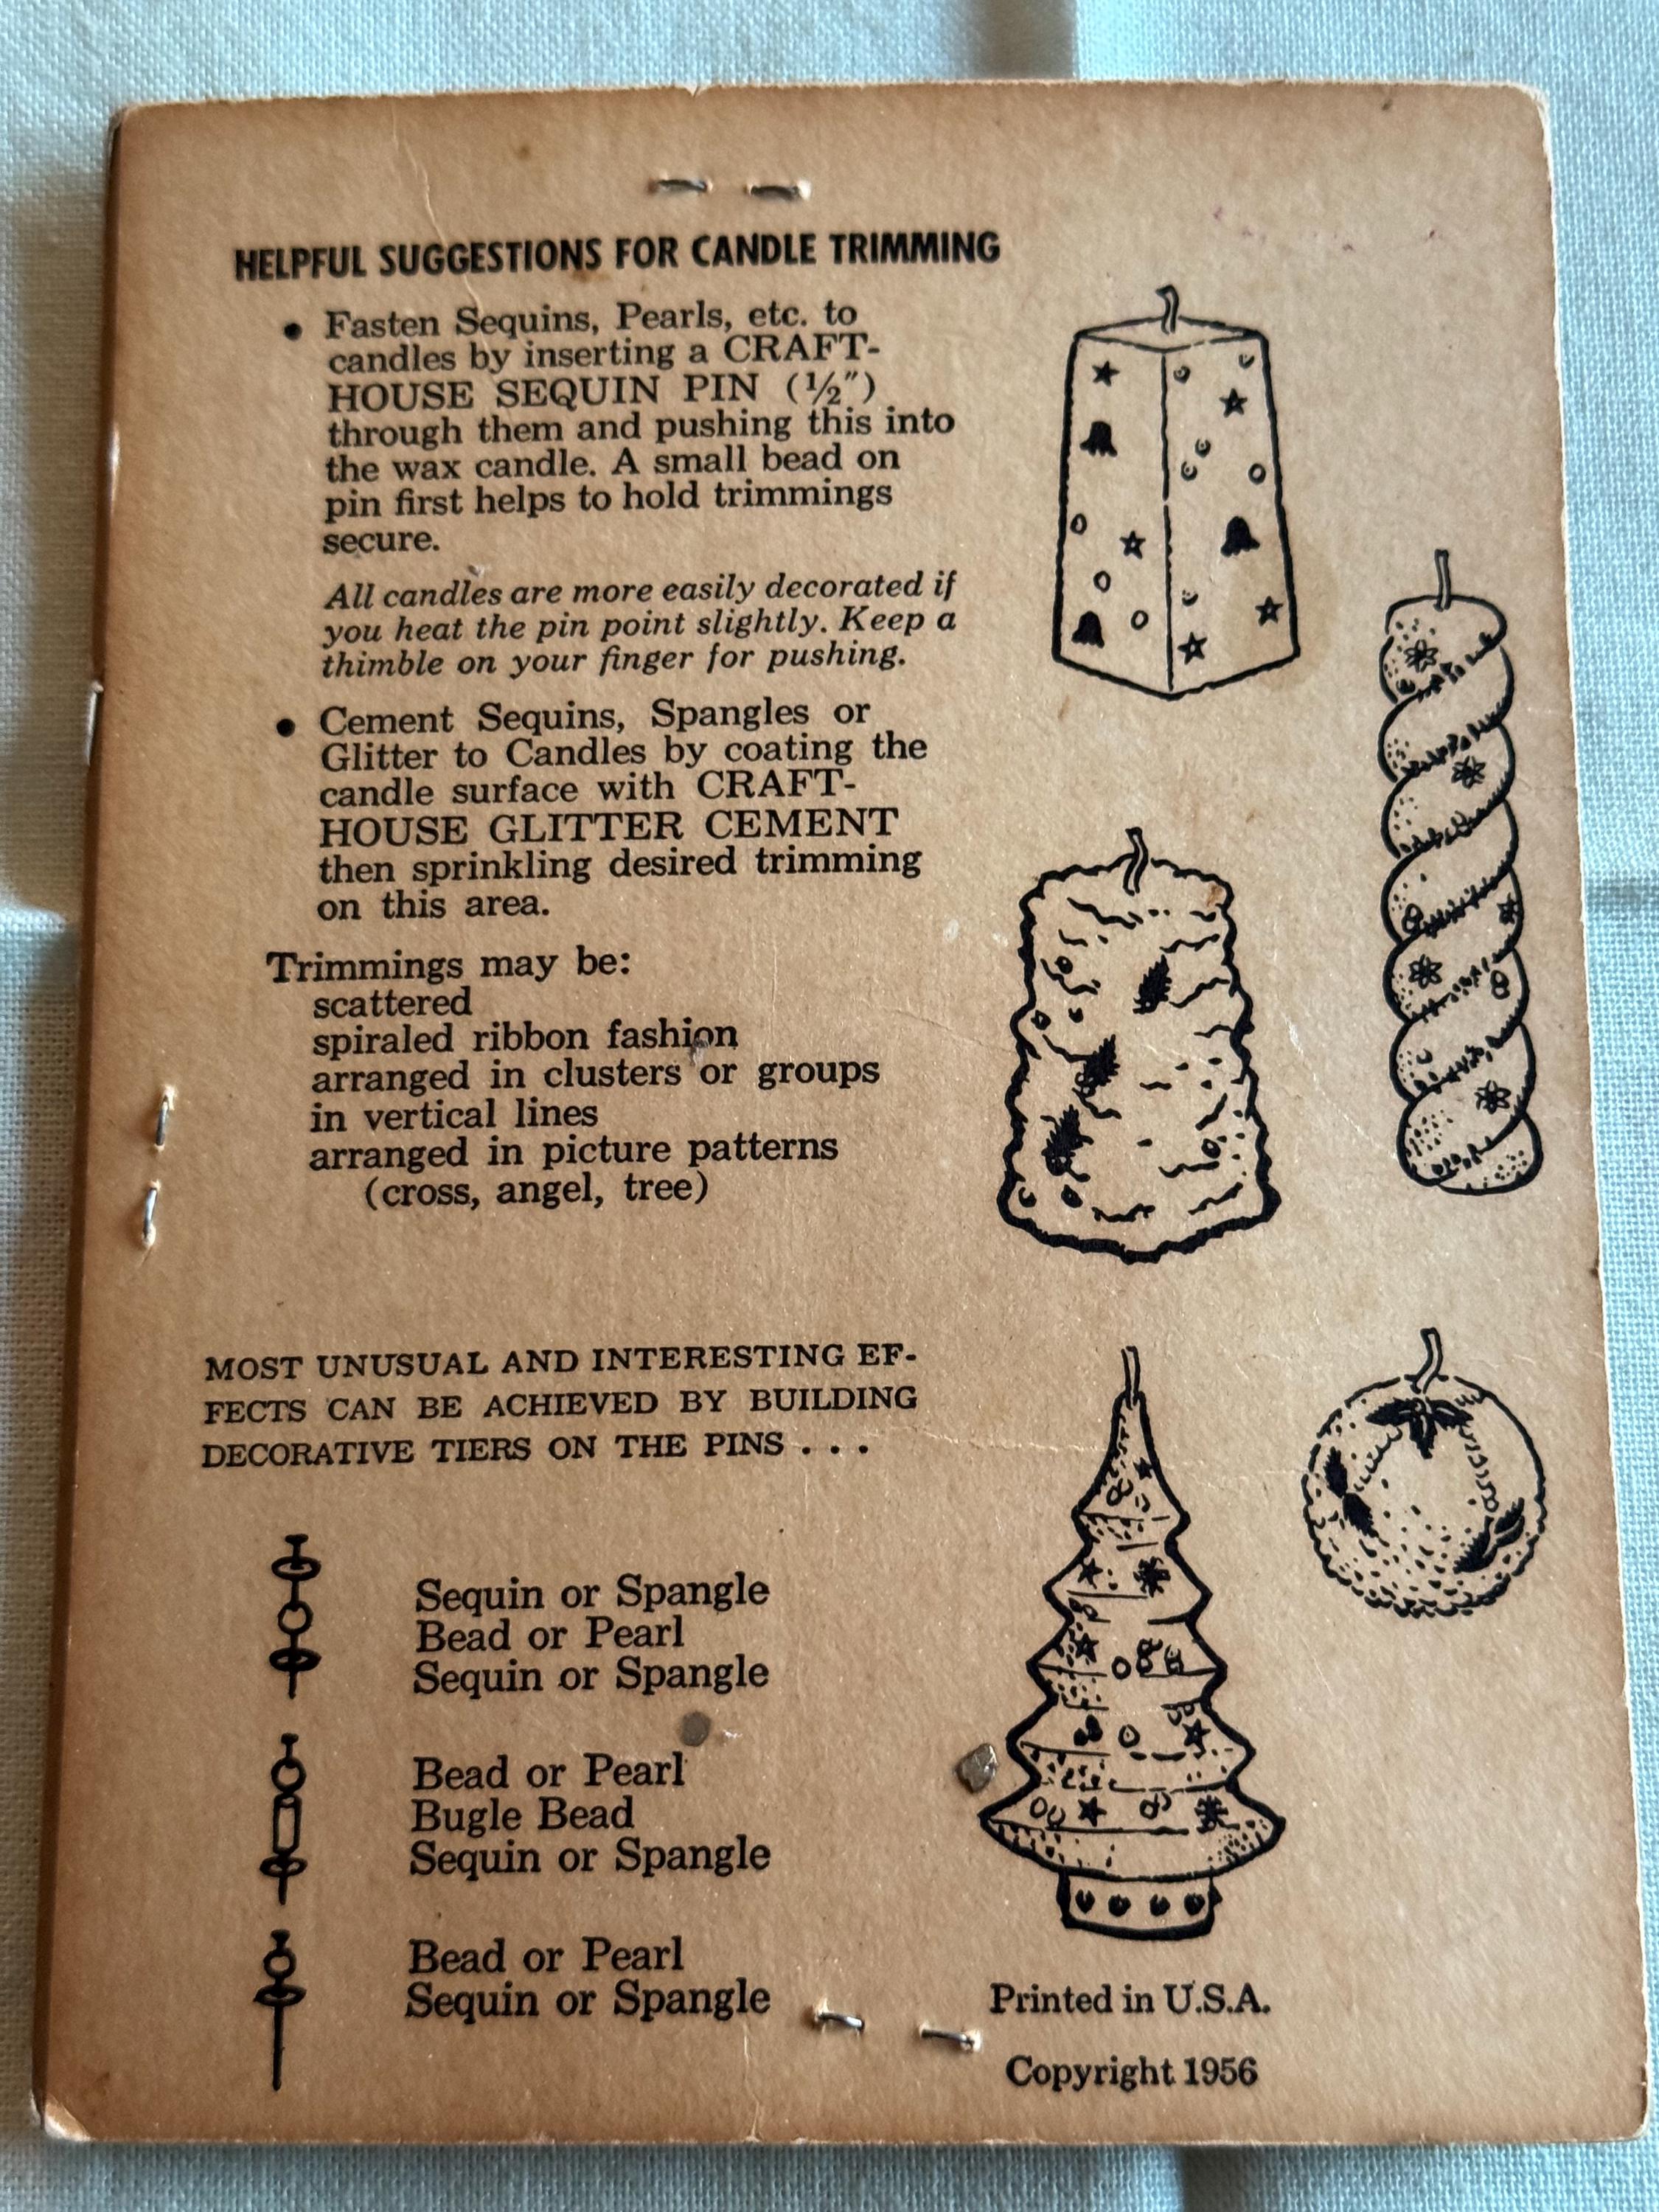 HELPFUL SUGGESTIONS FOR CANDLE TRIMMING
• Fasten Sequins, Pearls, etc. to
candles by inserting a CRAFT-
HOUSE SEQUIN PIN (½″)
through them and pushing this into
the wax candle. A small bead on
pin first helps to hold trimmings
secure.
All candles are more easily decorated if
you heat the pin point slightly. Keep a
thimble on your finger for pushing.
• Cement Sequins, Spangles or
Glitter to Candles by coating the
candle surface with CRAFT-
HOUSE GLITTER CEMENT
then sprinkling desired trimming
on this area.
Trimmings may be:
scattered
spiraled ribbon fashion
arranged in clusters or groups
in vertical lines
arranged in picture patterns
(cross, angel, tree)
MOST UNUSUAL AND INTERESTING EF-
FECTS CAN BE ACHIEVED BY BUILDING
DECORATIVE TIERS ON THE PINS . . .
Sequin or Spangle
Bead or Pearl
Sequin or Spangle
Bead or Pearl
Bugle Bead
Sequin or Spangle
Bead or Pearl
Sequin or Spangle
Printed in U.S.A.
Copyright 1956